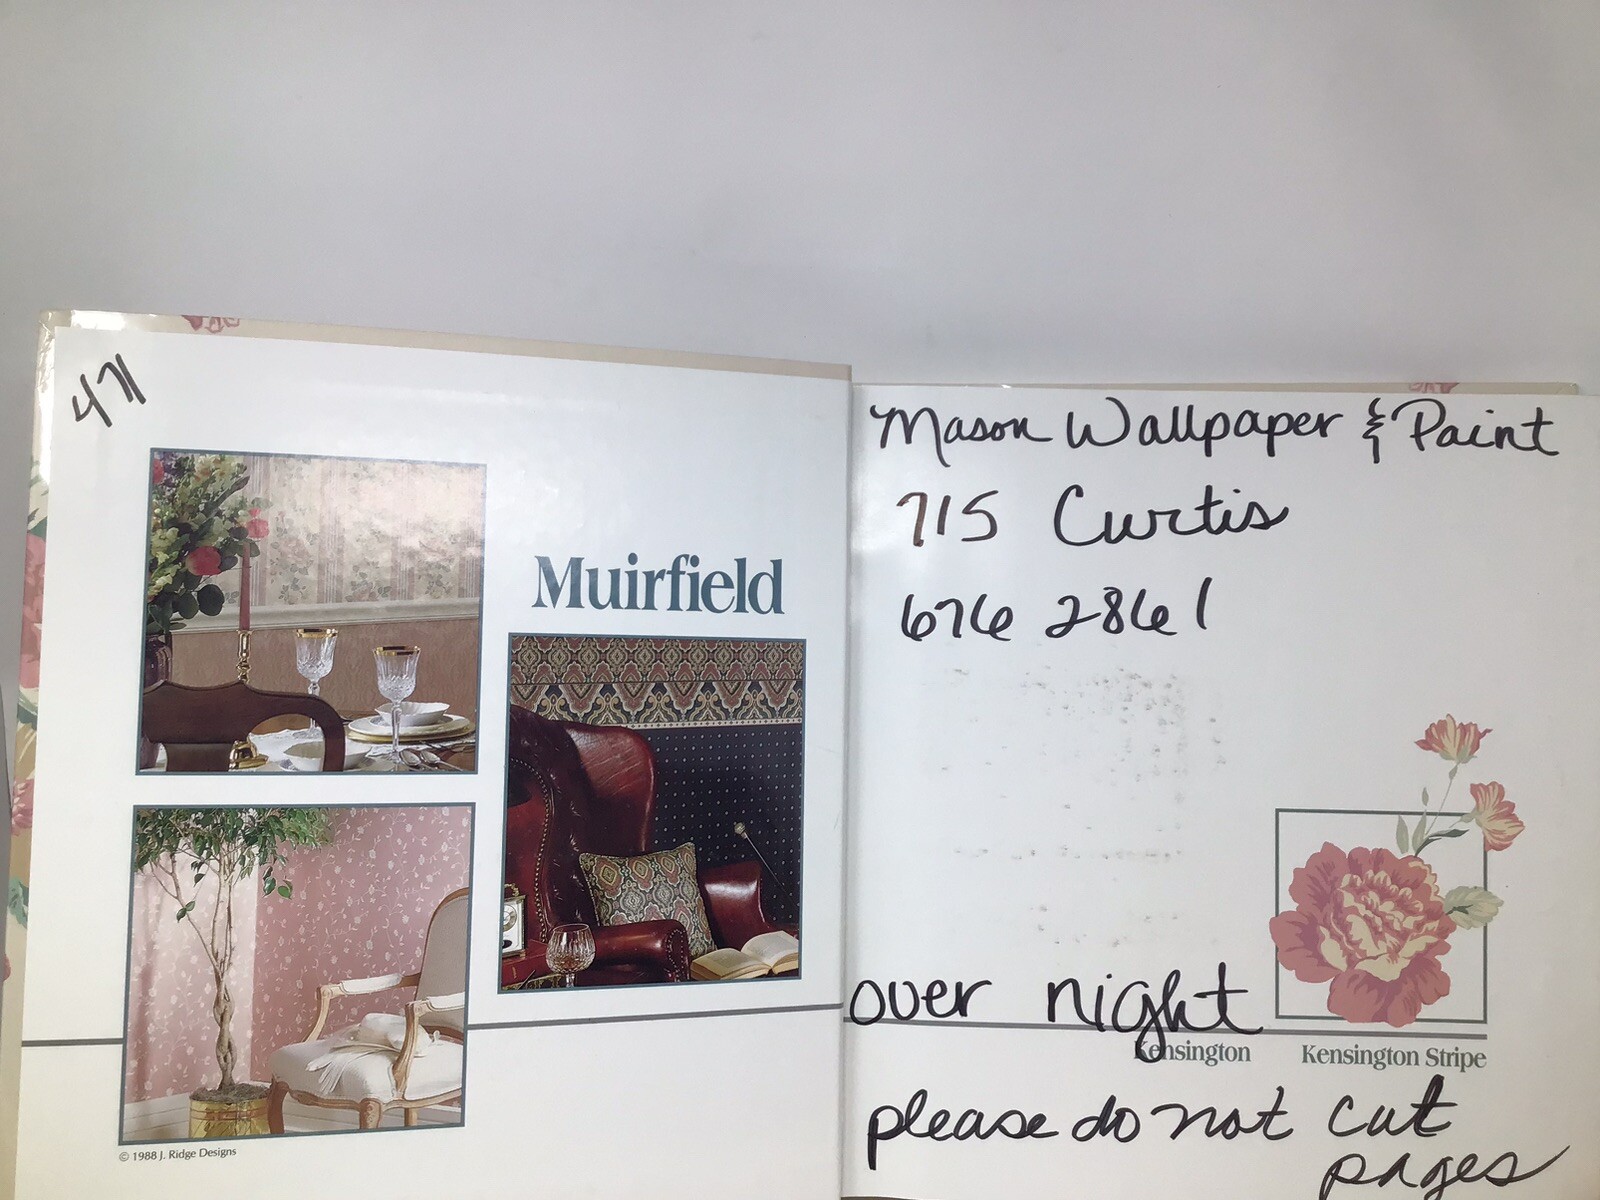 471
Muirfield
© 1988 J. Ridge Designs
Mason Wallpaper & Paint
715 Curtis
676 2861
over night
Kensington
Kensington Stripe
please do not cut
pages